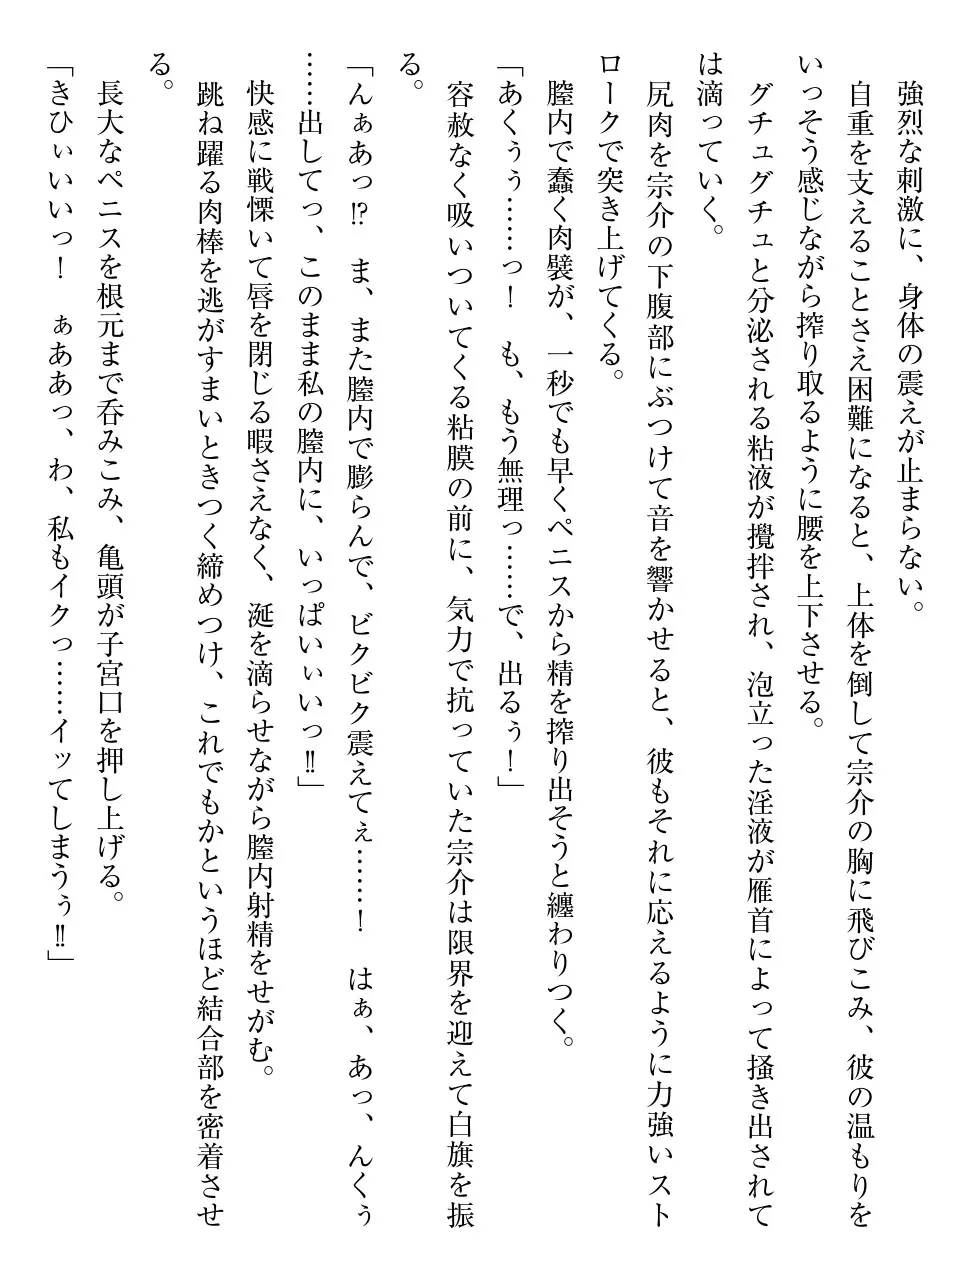 強烈な刺激に、身体の震えが止まらない。
自重を支えることさえ困難になると、上体を倒して宗介の胸に飛びこみ、彼の温もりを
いっそう感じながら搾り取るように腰を上下させる。
グチュグチュと分泌される粘液が攪拌され、泡立った淫液が雁首によって掻き出されて
は滴っていく。
尻肉を宗介の下腹部にぶつけて音を響かせると、彼もそれに応えるように力強いスト
ロークで突き上げてくる。
膣内で蠢く肉襞が、一秒でも早くペニスから精を搾り出そうと纏わりつく。
「あくぅぅ……っ！　も、もう無理っ……で、出るぅ！」
容赦なく吸いついてくる粘膜の前に、気力で抗っていた宗介は限界を迎えて白旗を振
る。
「んぁあっ⁉　ま、また膣内で膨らんで、ビクビク震えてぇ……！　はぁ、あっ、んくぅ
……出してっ、このまま私の膣内に、いっぱいぃいっ‼」
快感に戦慄いて唇を閉じる暇さえなく、涎を滴らせながら膣内射精をせがむ。
跳ね躍る肉棒を逃がすまいときつく締めつけ、これでもかというほど結合部を密着させ
る。
長大なペニスを根元まで呑みこみ、亀頭が子宮口を押し上げる。
「きひぃいいっ！　ぁああっ、わ、私もイクっ……イッてしまうぅ‼」